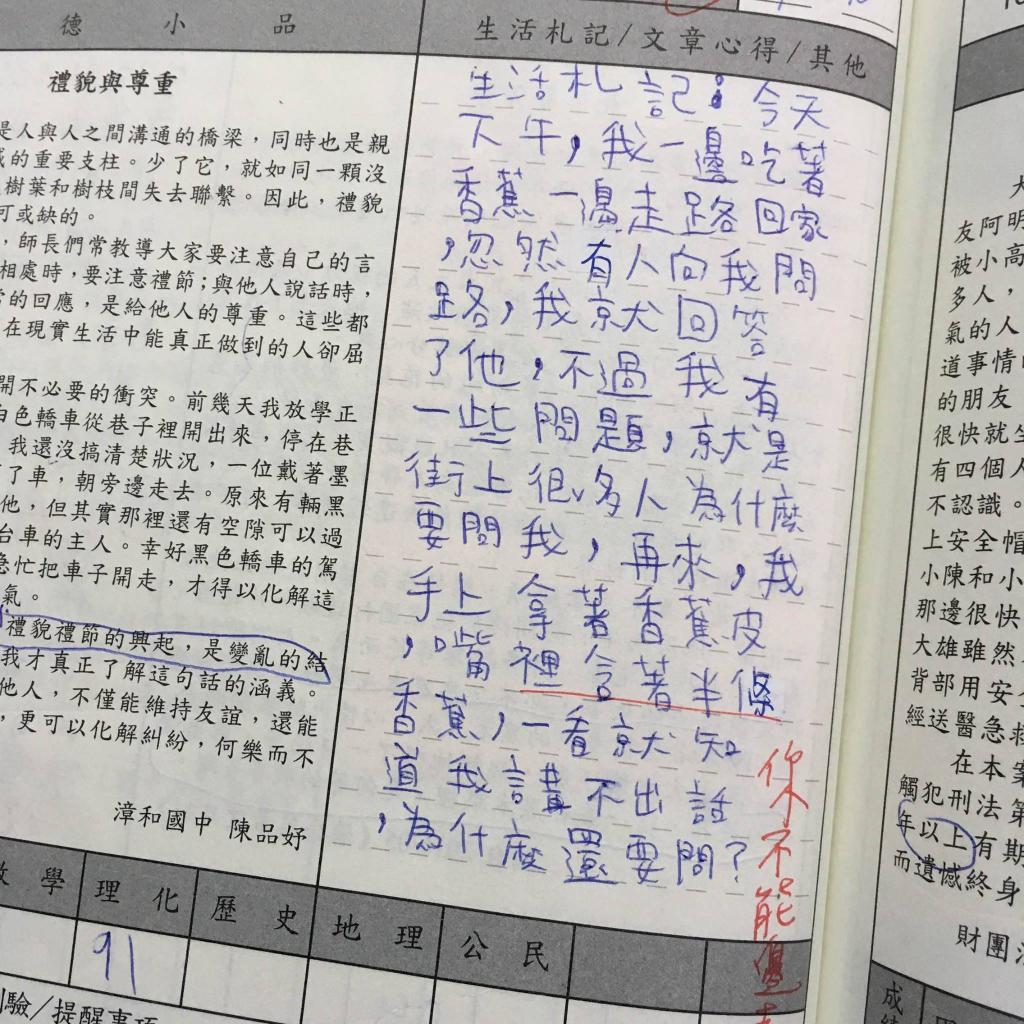 德小品
禮貌與尊重
是人與人之間溝通的橋梁，同時也是親
的重要支柱。少了它，就如同一顆沒
樹葉和樹枝間失去聯繫。因此，禮貌
可或缺的。
，師長們常教導大家要注意自己的言
相處時，要注意禮節；與他人說話時，
的回應，是給他人的尊重。這些都
在現實生活中能真正做到的人卻屈
開不必要的衝突。前幾天我放學正
白色轎車從巷子裡開出來，停在巷
我還沒搞清楚狀況，一位戴著墨
了車，朝旁邊走去。原來有輛黑
他，但其實那裡還有空隙可以過
台車的主人。幸好黑色轎車的駕
急忙把車子開走，才得以化解這
氣。
禮貌禮節的興起，是變亂的結
我才真正了解這句話的涵義。
他人，不僅能維持友誼，還能
，更可以化解糾紛，何樂而不
漳和國中 陳品妤
生活札記/文章心得/其他
生活札記：今天
下午，我一邊吃著
香蕉一邊走路回家
，忽然有人向我問
路，我就回答
了他，不過我有
一些問題，就是
街上很多人為什麼
要問我，再來，我
手上拿著香蕉皮
，嘴裡含著半條
香蕉，一看就知
道我講不出話
，為什麼還要問？
你不能邊走
數學 理化 歷史 地理 公民
91
測驗/提醒事項
友阿明
被小高
多人，
氣的人
道事情
的朋友
很快就
有四個人
不認識。
上安全帽
小陳和小
那邊很快
大雄雖然
背部用安全
經送醫急救
在本案
觸犯刑法第
年以上有期
而遺憾終身
財團法
成績